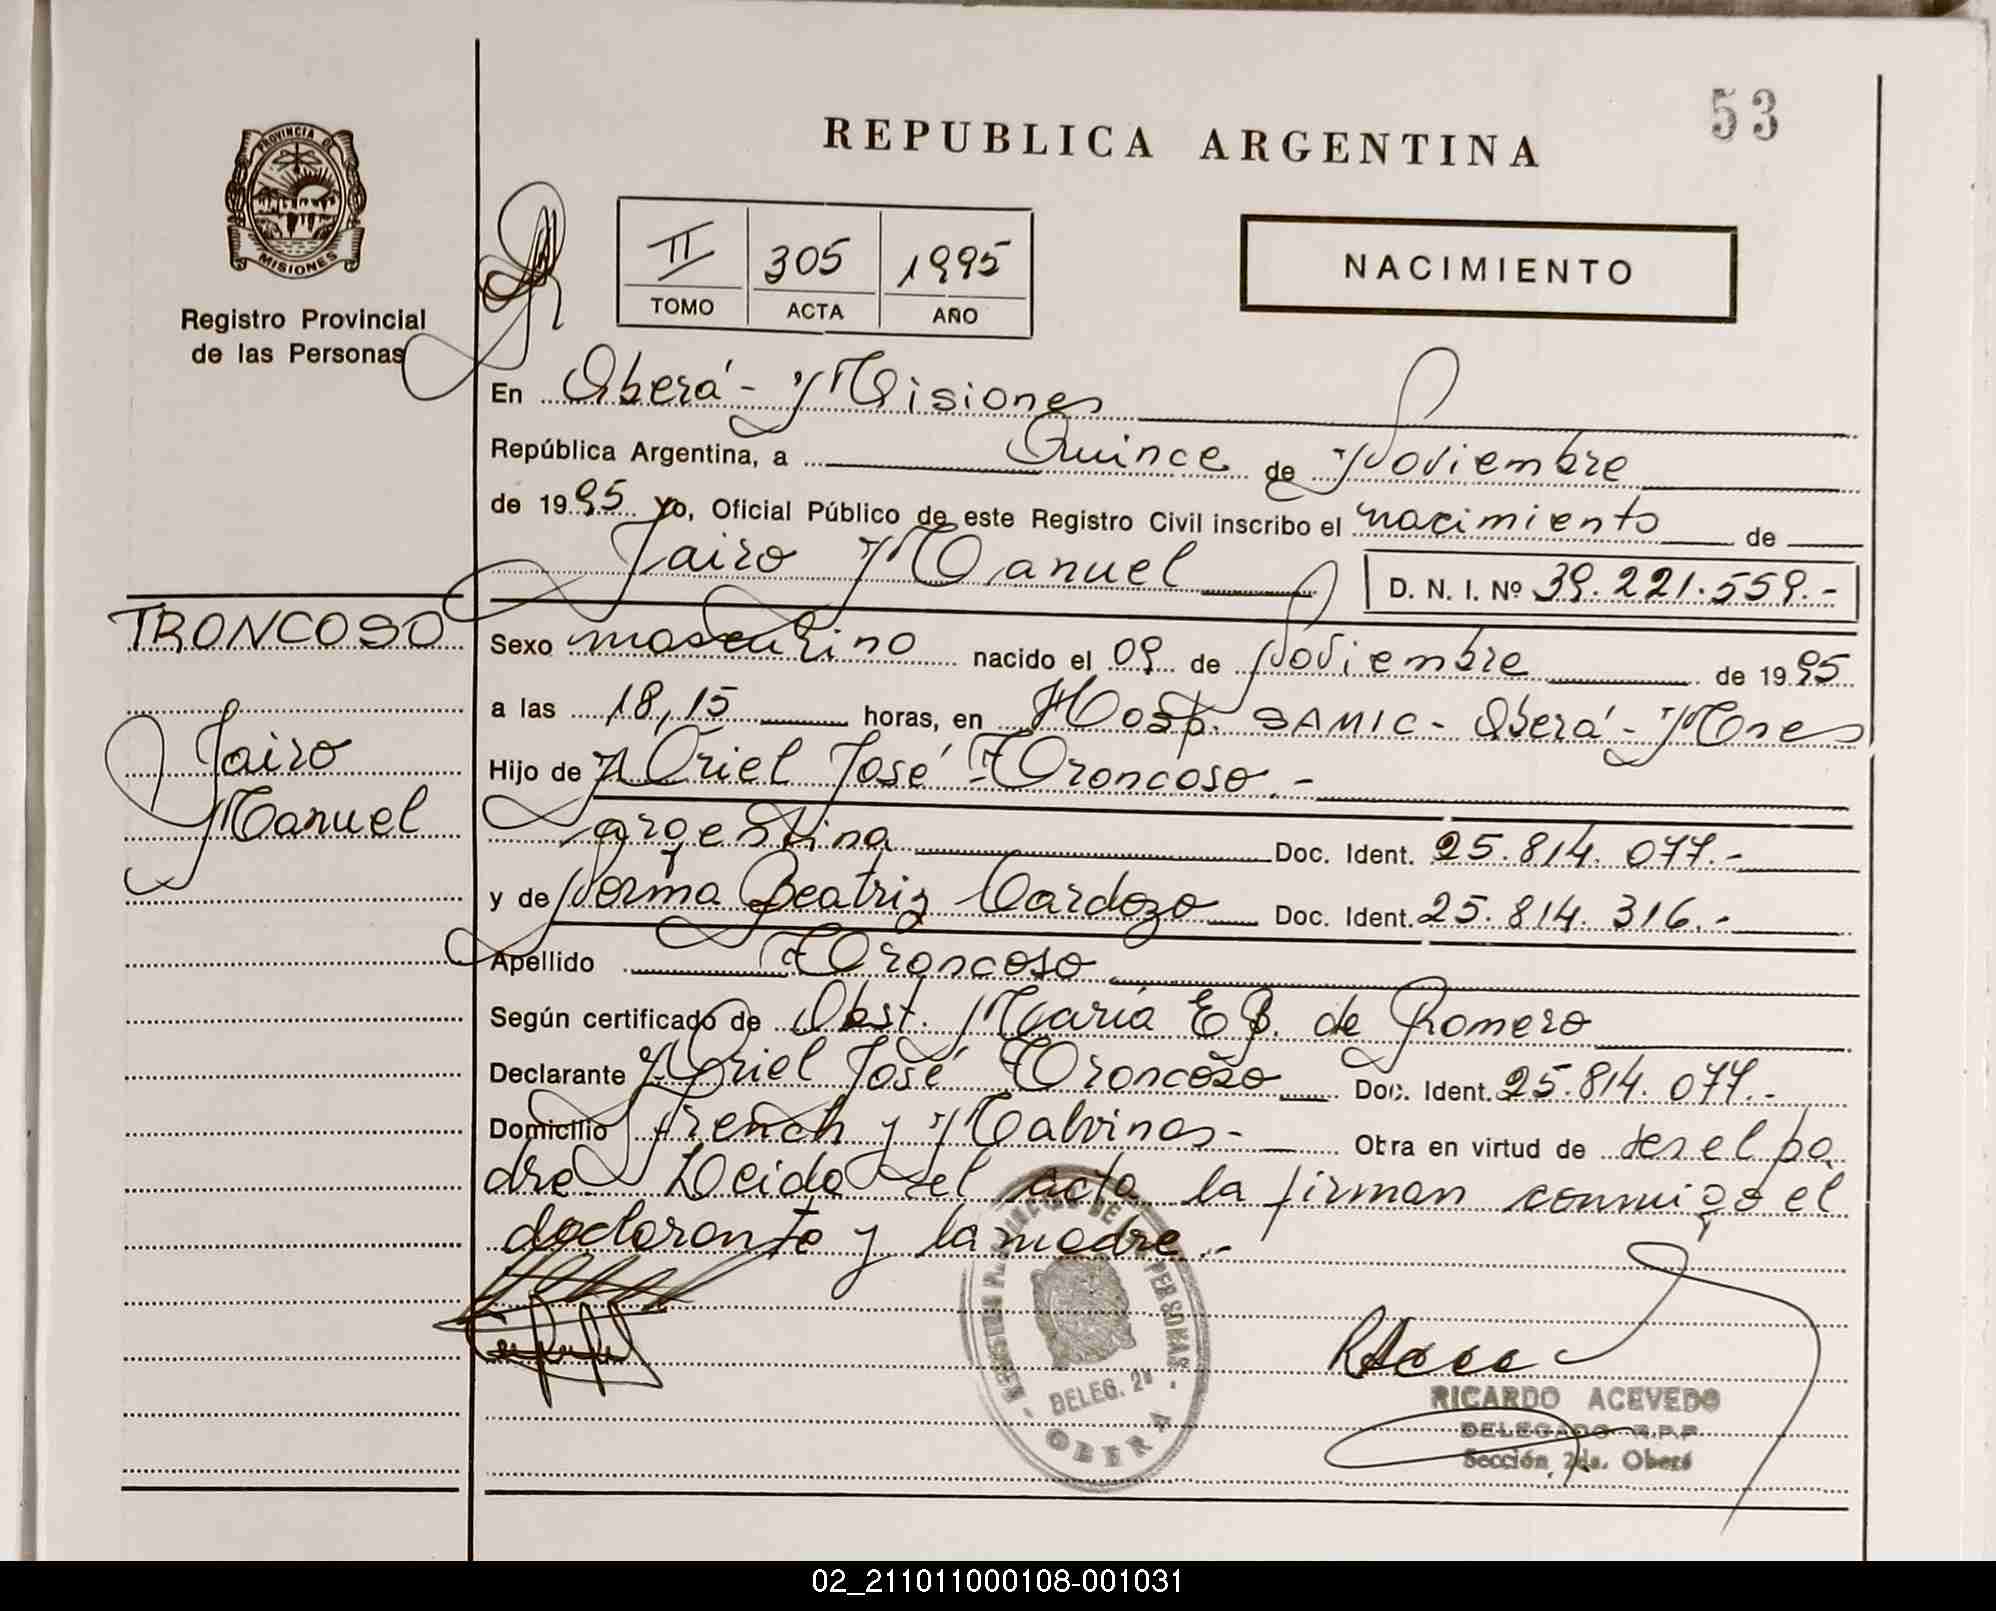 53
REPUBLICA ARGENTINA
PROVINCIA DE
MISIONES
Registro Provincial
de las Personas
II 305 1995
TOMO ACTA AÑO
NACIMIENTO
En Oberá - Misiones
República Argentina, a Quince de Noviembre
de 1995 Yo, Oficial Público de este Registro Civil inscribo el nacimiento de
Jairo Manuel D. N. I. Nº 39.221.559.-
TRONCOSO
Jairo
Manuel
Sexo masculino nacido el 09 de Noviembre de 1995
a las 18,15 horas, en Hosp. SAMIC - Oberá - Mnes
Hijo de Uriel José Troncoso.-
argentina Doc. Ident. 25.814.077.-
y de Norma Beatriz Cardozo Doc. Ident. 25.814.316.-
Apellido Troncoso
Según certificado de Obst. María E B. de Romero
Declarante Uriel José Troncoso Doc. Ident. 25.814.077.-
Domicilio French y Malvinas - Obra en virtud de ser el pa
dre. Leida el acta la firman conmigo el
declarante y la madre.-
REGISTRO PROVINCIAL DE LAS PERSONAS
DELEG. 2ª
OBERA
RICARDO ACEVEDO
DELEGADO R.P.P
Sección 2da. Oberá
02_211011000108-001031